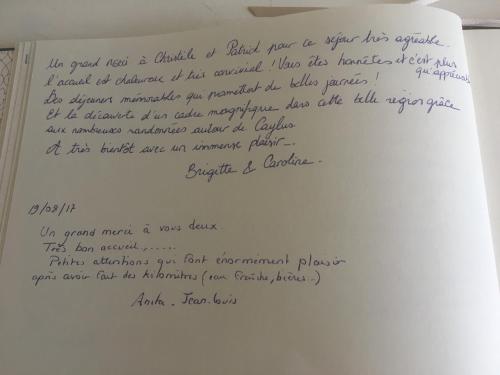 Un grand merci à Christèle et Patrick pour ce séjour très agréable.
l'accueil est chaleureux et très convivial ! Vous êtes honnêtes et c'est plus
qu'appréciable
Des déjeuners mémorables qui promettent de belles journées !
Et la découverte d'un cadre magnifique dans cette belle région grâce
aux nombreuses randonnées autour de Caylus.
A très bientôt avec un immense plaisir...
Brigitte & Caroline.
19/08/17
Un grand merci à vous deux.
Très bon accueil,......
Petites attentions qui font énormément plaisir
après avoir fait des kilomètres (eau fraîche, bières...)
Anita - Jean-Louis